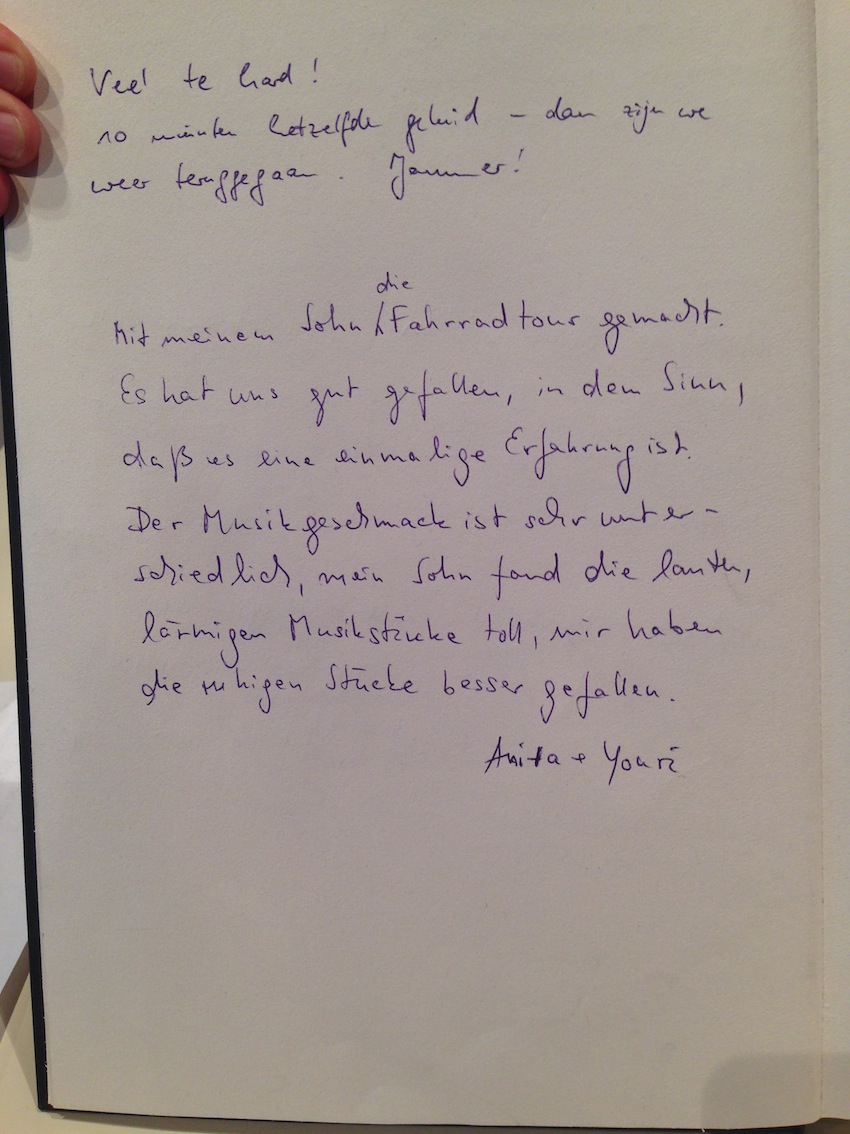 Veel te hard!
10 minuten hetzelfde geluid – dan zijn we
weer teruggegaan. Jammer!
die
Mit meinem Sohn Fahrradtour gemacht.
Es hat uns gut gefallen, in dem Sinn,
daß es eine einmalige Erfahrung ist.
Der Musikgeschmack ist sehr unter-
schiedlich, mein Sohn fand die lauten,
lärmigen Musikstücke toll, mir haben
die ruhigen Stücke besser gefallen.
Anita + Youri